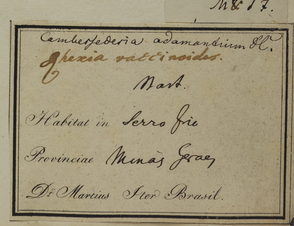 Cambessedesia adamantium DC.
Rhexia vaccinoides.
Mart.
Habitat in Serro frio
Provinciae Minas Geraes
Dr. Martius Iter Brasil.